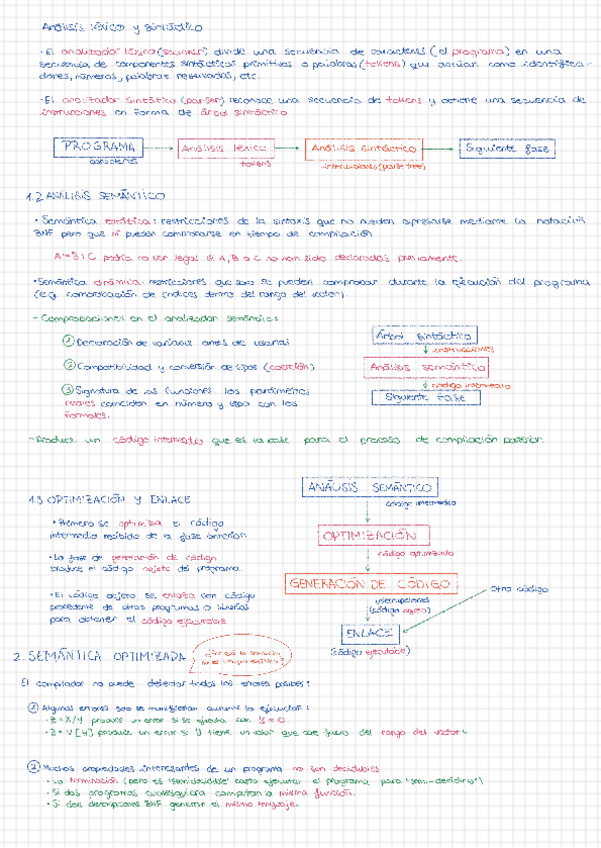 Análisis léxico y sintáctico
· El analizador léxico (scanner) divide una secuencia de caracteres (el programa) en una
secuencia de componentes sintácticos primitivos o palabras (tokens) que actúan como identifica-
dores, números, palabras reservadas, etc.
· El analizador sintáctico (parser) reconoce una secuencia de tokens y obtiene una secuencia de
instrucciones en forma de árbol sintáctico
PROGRAMA
Análisis léxico
Análisis sintáctico
Siguiente fase
caracteres
tokens
instrucciones (parse tree)
1.2 ANÁLISIS SEMÁNTICO
· Semántica estática: restricciones de la sintaxis que no pueden expresarse mediante la notación
BNF pero que sí pueden comprobarse en tiempo de compilación
A = B + C podría no ser legal si A, B o C no han sido declarados previamente.
· Semántica dinámica: restricciones que solo se pueden comprobar durante la ejecución del programa
(e.g. comprobación de índices dentro del rango del vector).
- Comprobaciones en el analizador semántico:
① Declaración de variable antes de usarla
② Compatibilidad y conversión de tipos (coerción)
③ Signatura de las funciones los parámetros
reales coinciden en número y tipo con los
formales.
Árbol sintáctico
instrucciones
Análisis semántico
código intermedio
Siguiente fase
- Produce un código intermedio que es la base para el proceso de compilación posterior.
1.3 OPTIMIZACIÓN Y ENLACE
· Primero se optimiza el código
intermedio recibido de la fase anterior.
· La fase de generación de código
produce el código objeto del programa.
· El código objeto se enlaza con código
procedente de otros programas o librerías
para obtener el código ejecutable
ANÁLISIS SEMÁNTICO
código intermedio
OPTIMIZACIÓN
código optimizado
GENERACIÓN DE CÓDIGO
(código objeto)
Otro código
ENLACE
(código ejecutable)
2. SEMÁNTICA OPTIMIZADA
El compilador no puede detectar todos los errores posibles:
① Algunos errores solo se manifiestan durante la ejecución:
· Z = X/Y produce un error si se ejecuta con Y = 0
· Z = V[Y] produce un error si Y tiene un valor que cae fuera del rango del vector V
② Muchas propiedades interesantes de un programa no son decidibles
· La terminación (pero es semidecidible: basta ejecutar el programa para "semi-decidirlo")
· Si dos programas cualesquiera computan la misma función.
· Si dos descripciones BNF generan el mismo lenguaje.